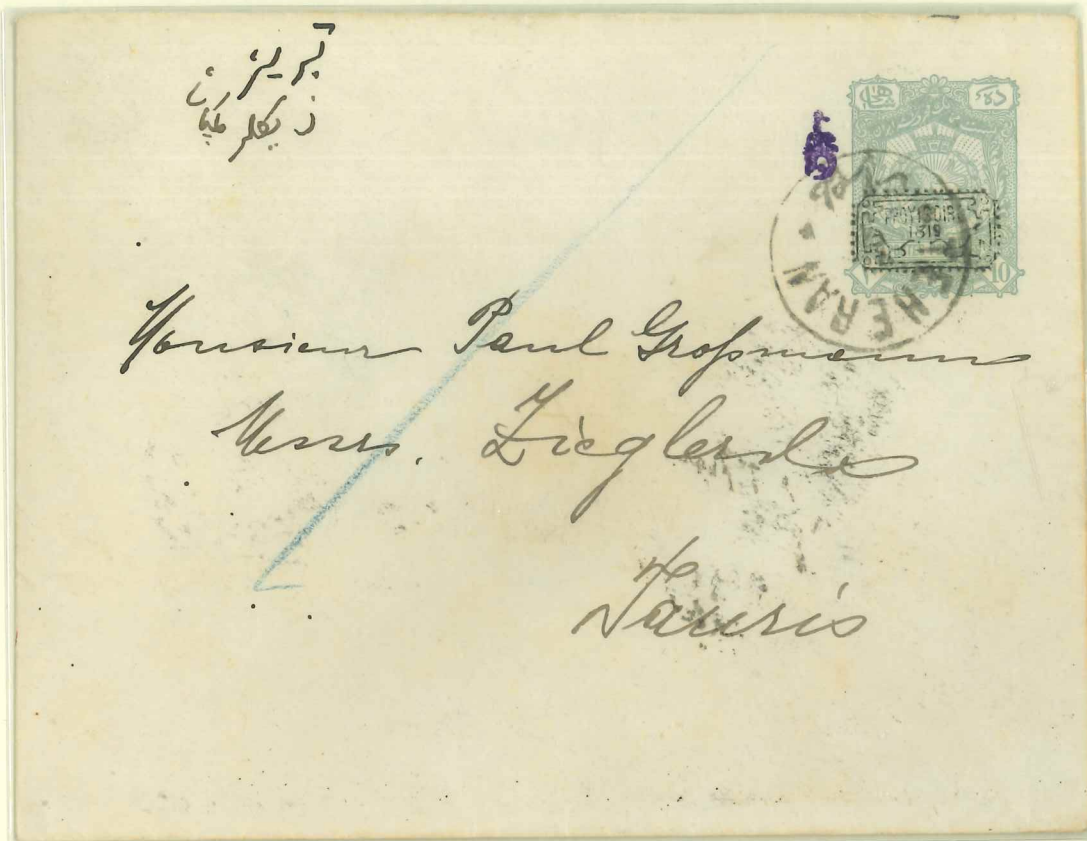 تبریز
زیکلر کمپانی
PROVISOIRE
1319
TEHERAN
10
Monsieur Paul Großmann
Messrs. Ziegler & Co
Tauris